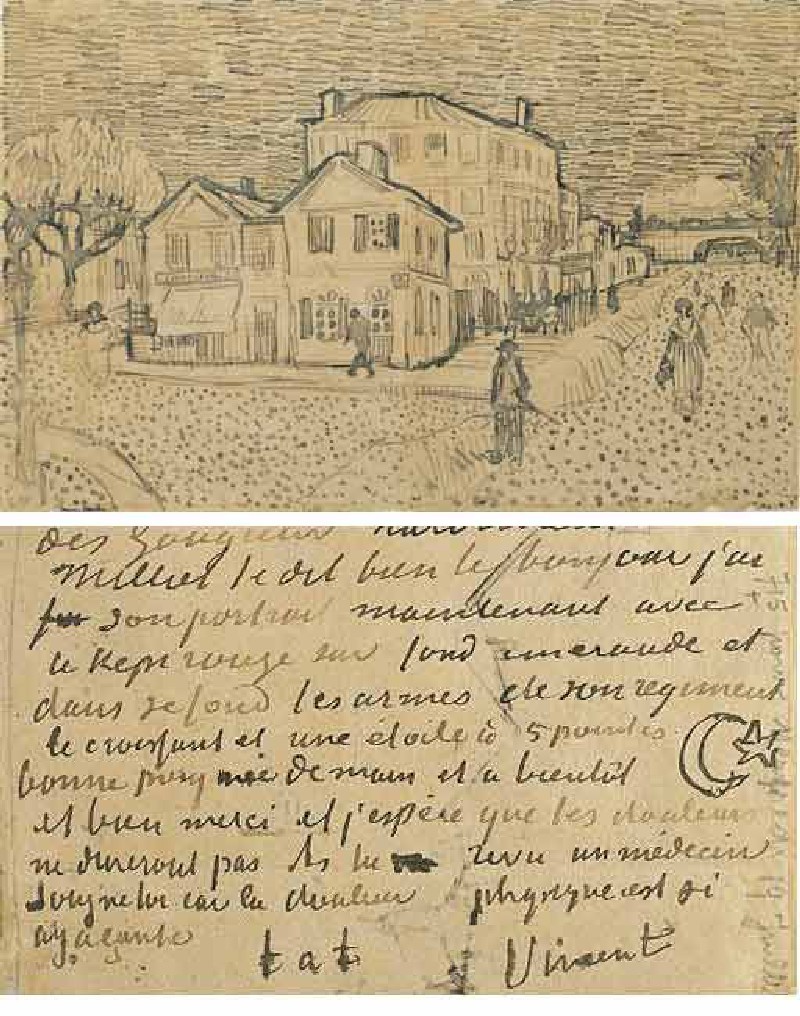 des
Milliet te dit bien le bonjour j'ai
fait son portrait maintenant avec
le Kepi rouge sur fond emeraude et
dans ce fond les armes de son regiment
le croissant et une étoile à 5 pointes.
bonne poignée de main et a bientôt
et bien merci et j'espère que tes douleurs
ne dureront pas As tu revu un médecin
Soigne toi car la douleur physique est si
agaçante
t a t Vincent